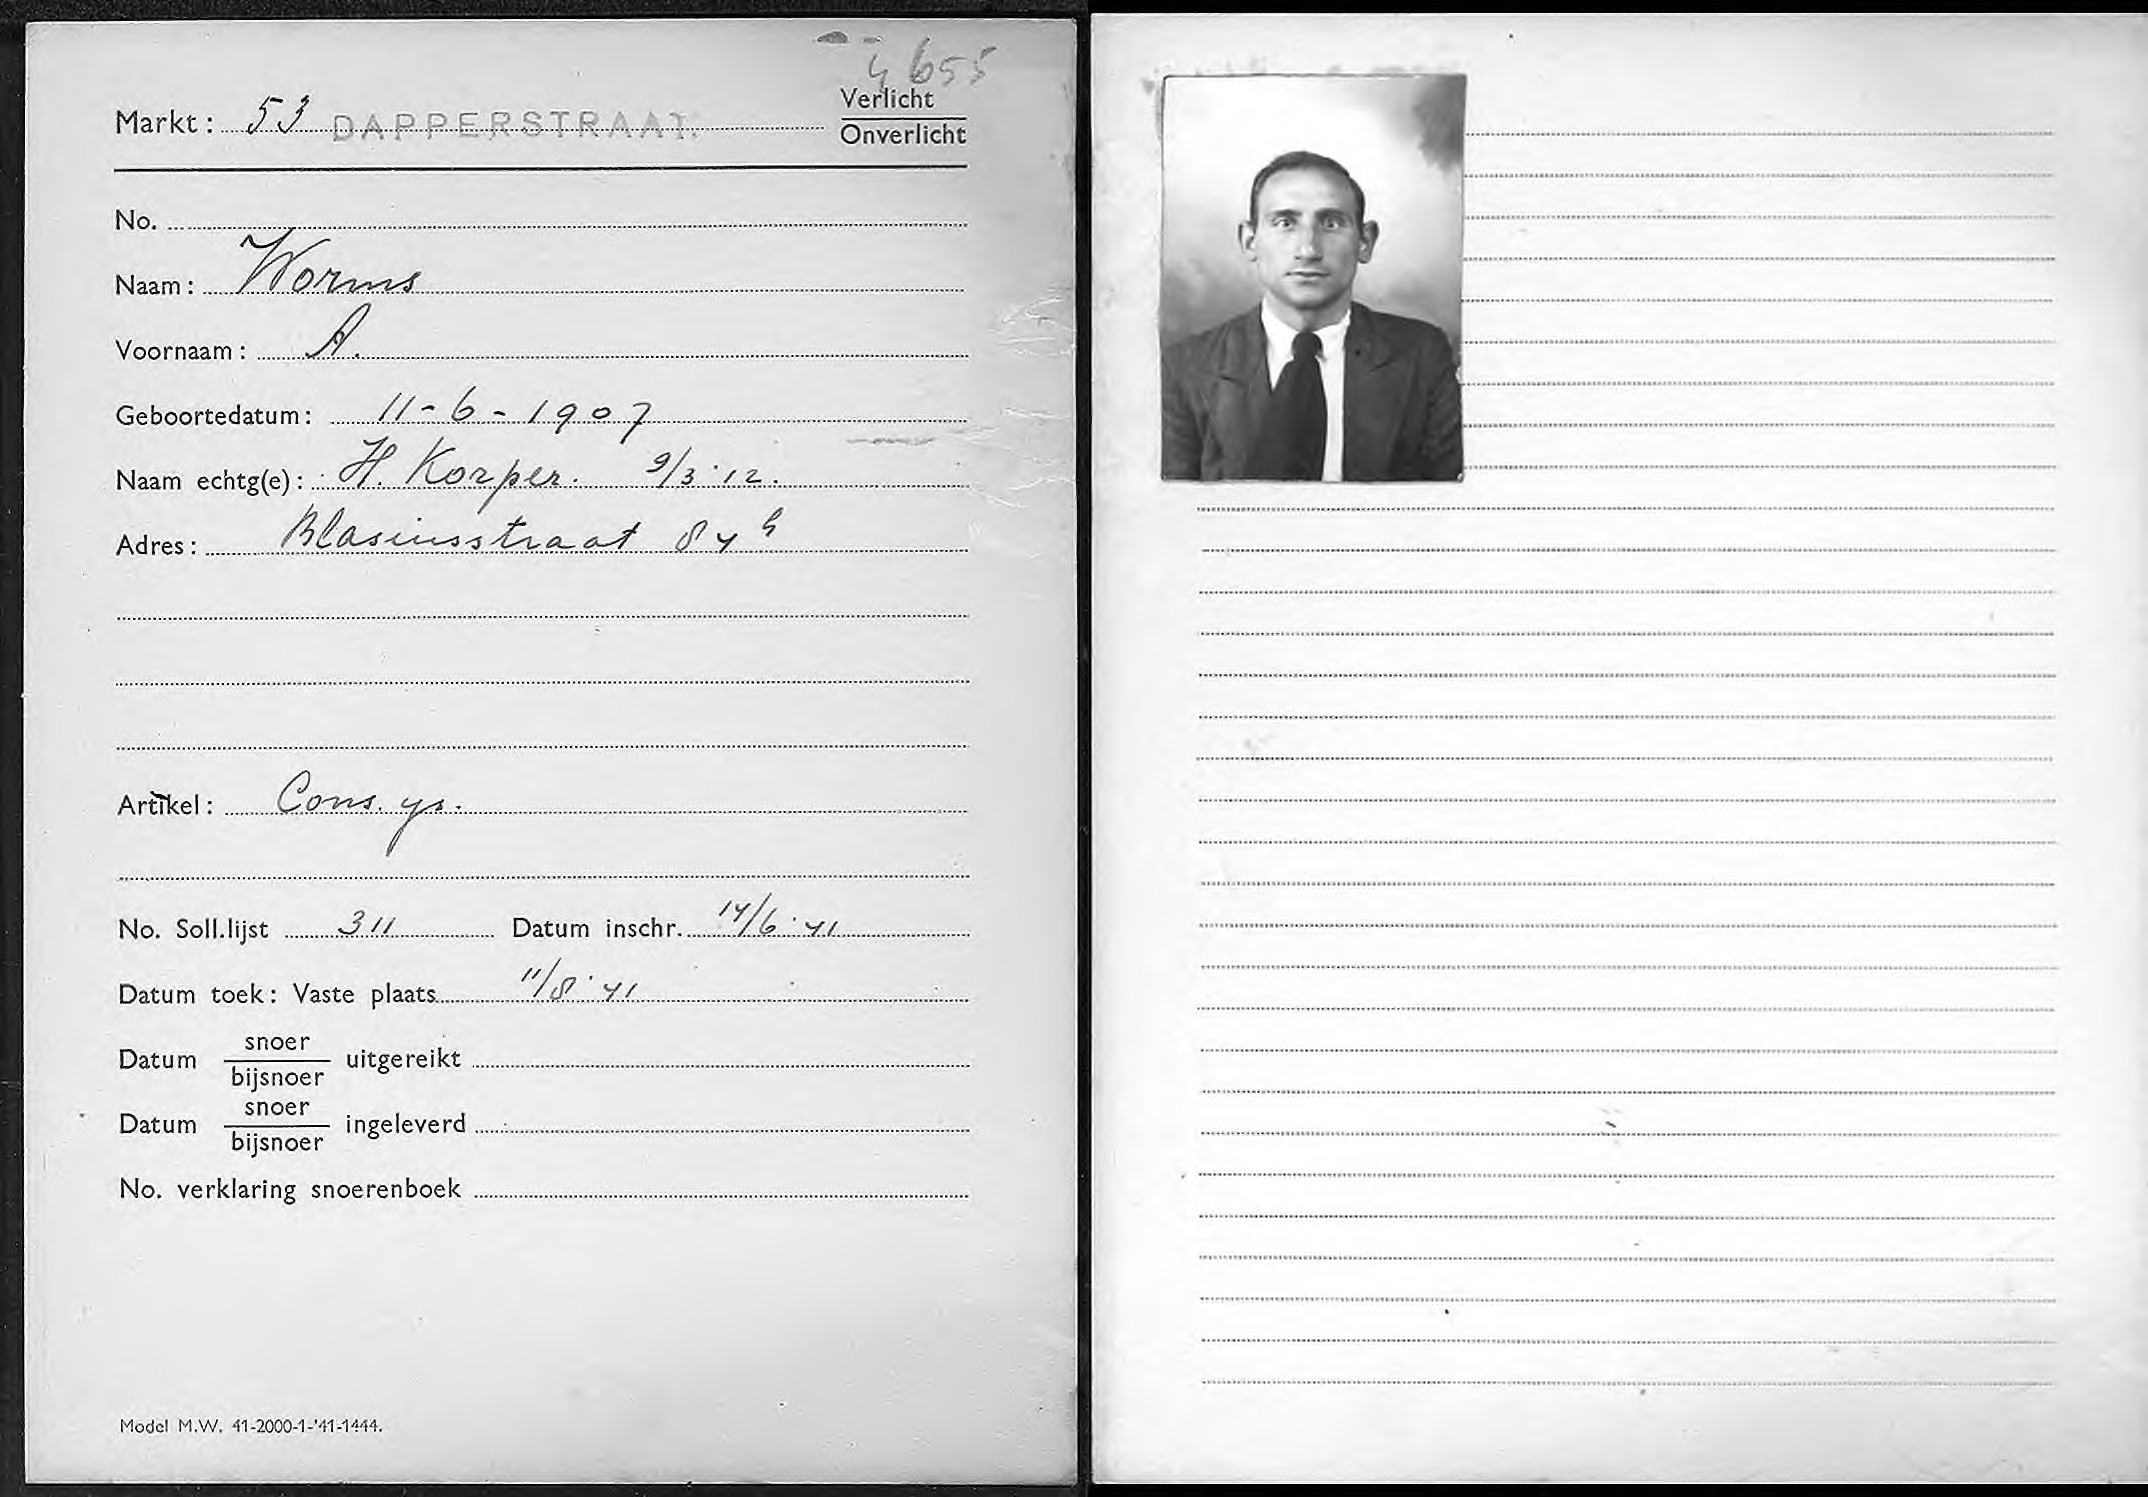 4655
Verlicht
Markt: 53 DAPPERSTRAAT.
Onverlicht
No.
Naam: Worms
Voornaam: A.
Geboortedatum: 11-6-1907
Naam echtg(e): H. Korper. 9/3 '12.
Adres: Blasiusstraat 84 h
Artikel: Cons. ys.
No. Soll.lijst 311 Datum inschr. 14/6 '41
Datum toek: Vaste plaats 11/8 '41
Datum snoer/bijsnoer uitgereikt
Datum snoer/bijsnoer ingeleverd
No. verklaring snoerenboek
Model M.W. 41-2000-1-'41-1444.